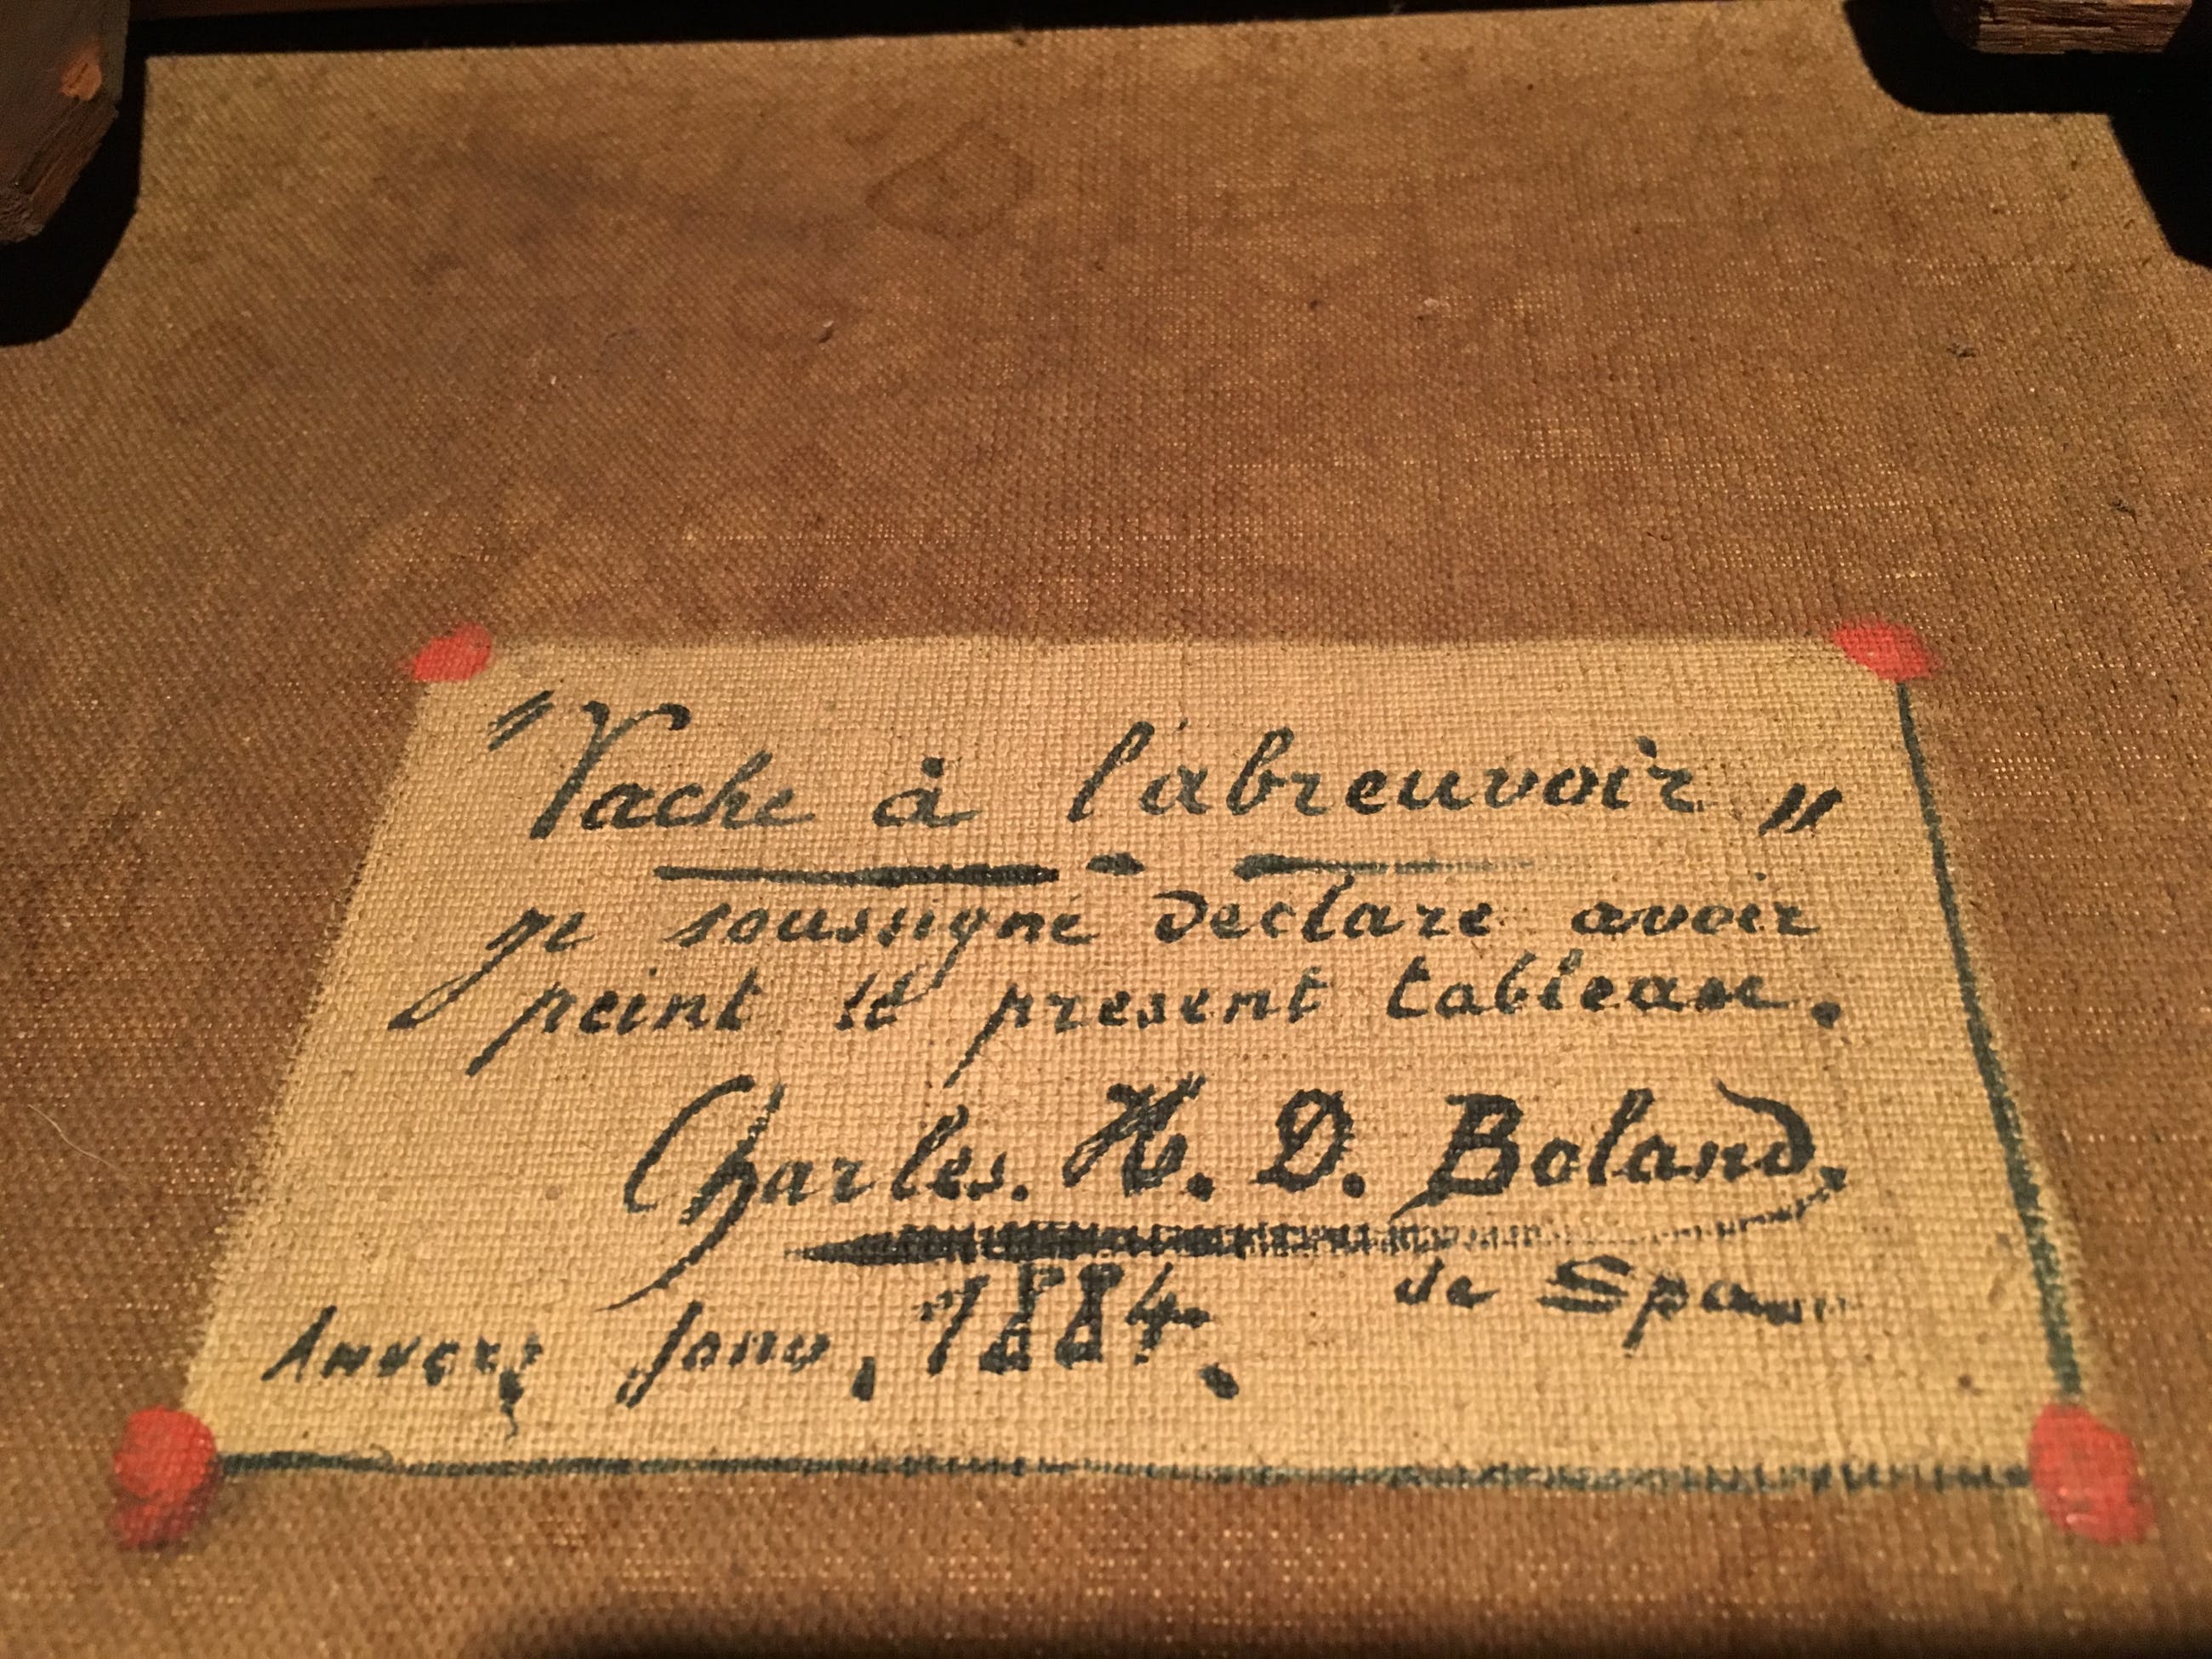 "Vache à l'abreuvoir"
je soussigné declare avoir
peint le present tableau.
Charles. H. D. Boland,
de Spa
Anvers Janv, 1884.